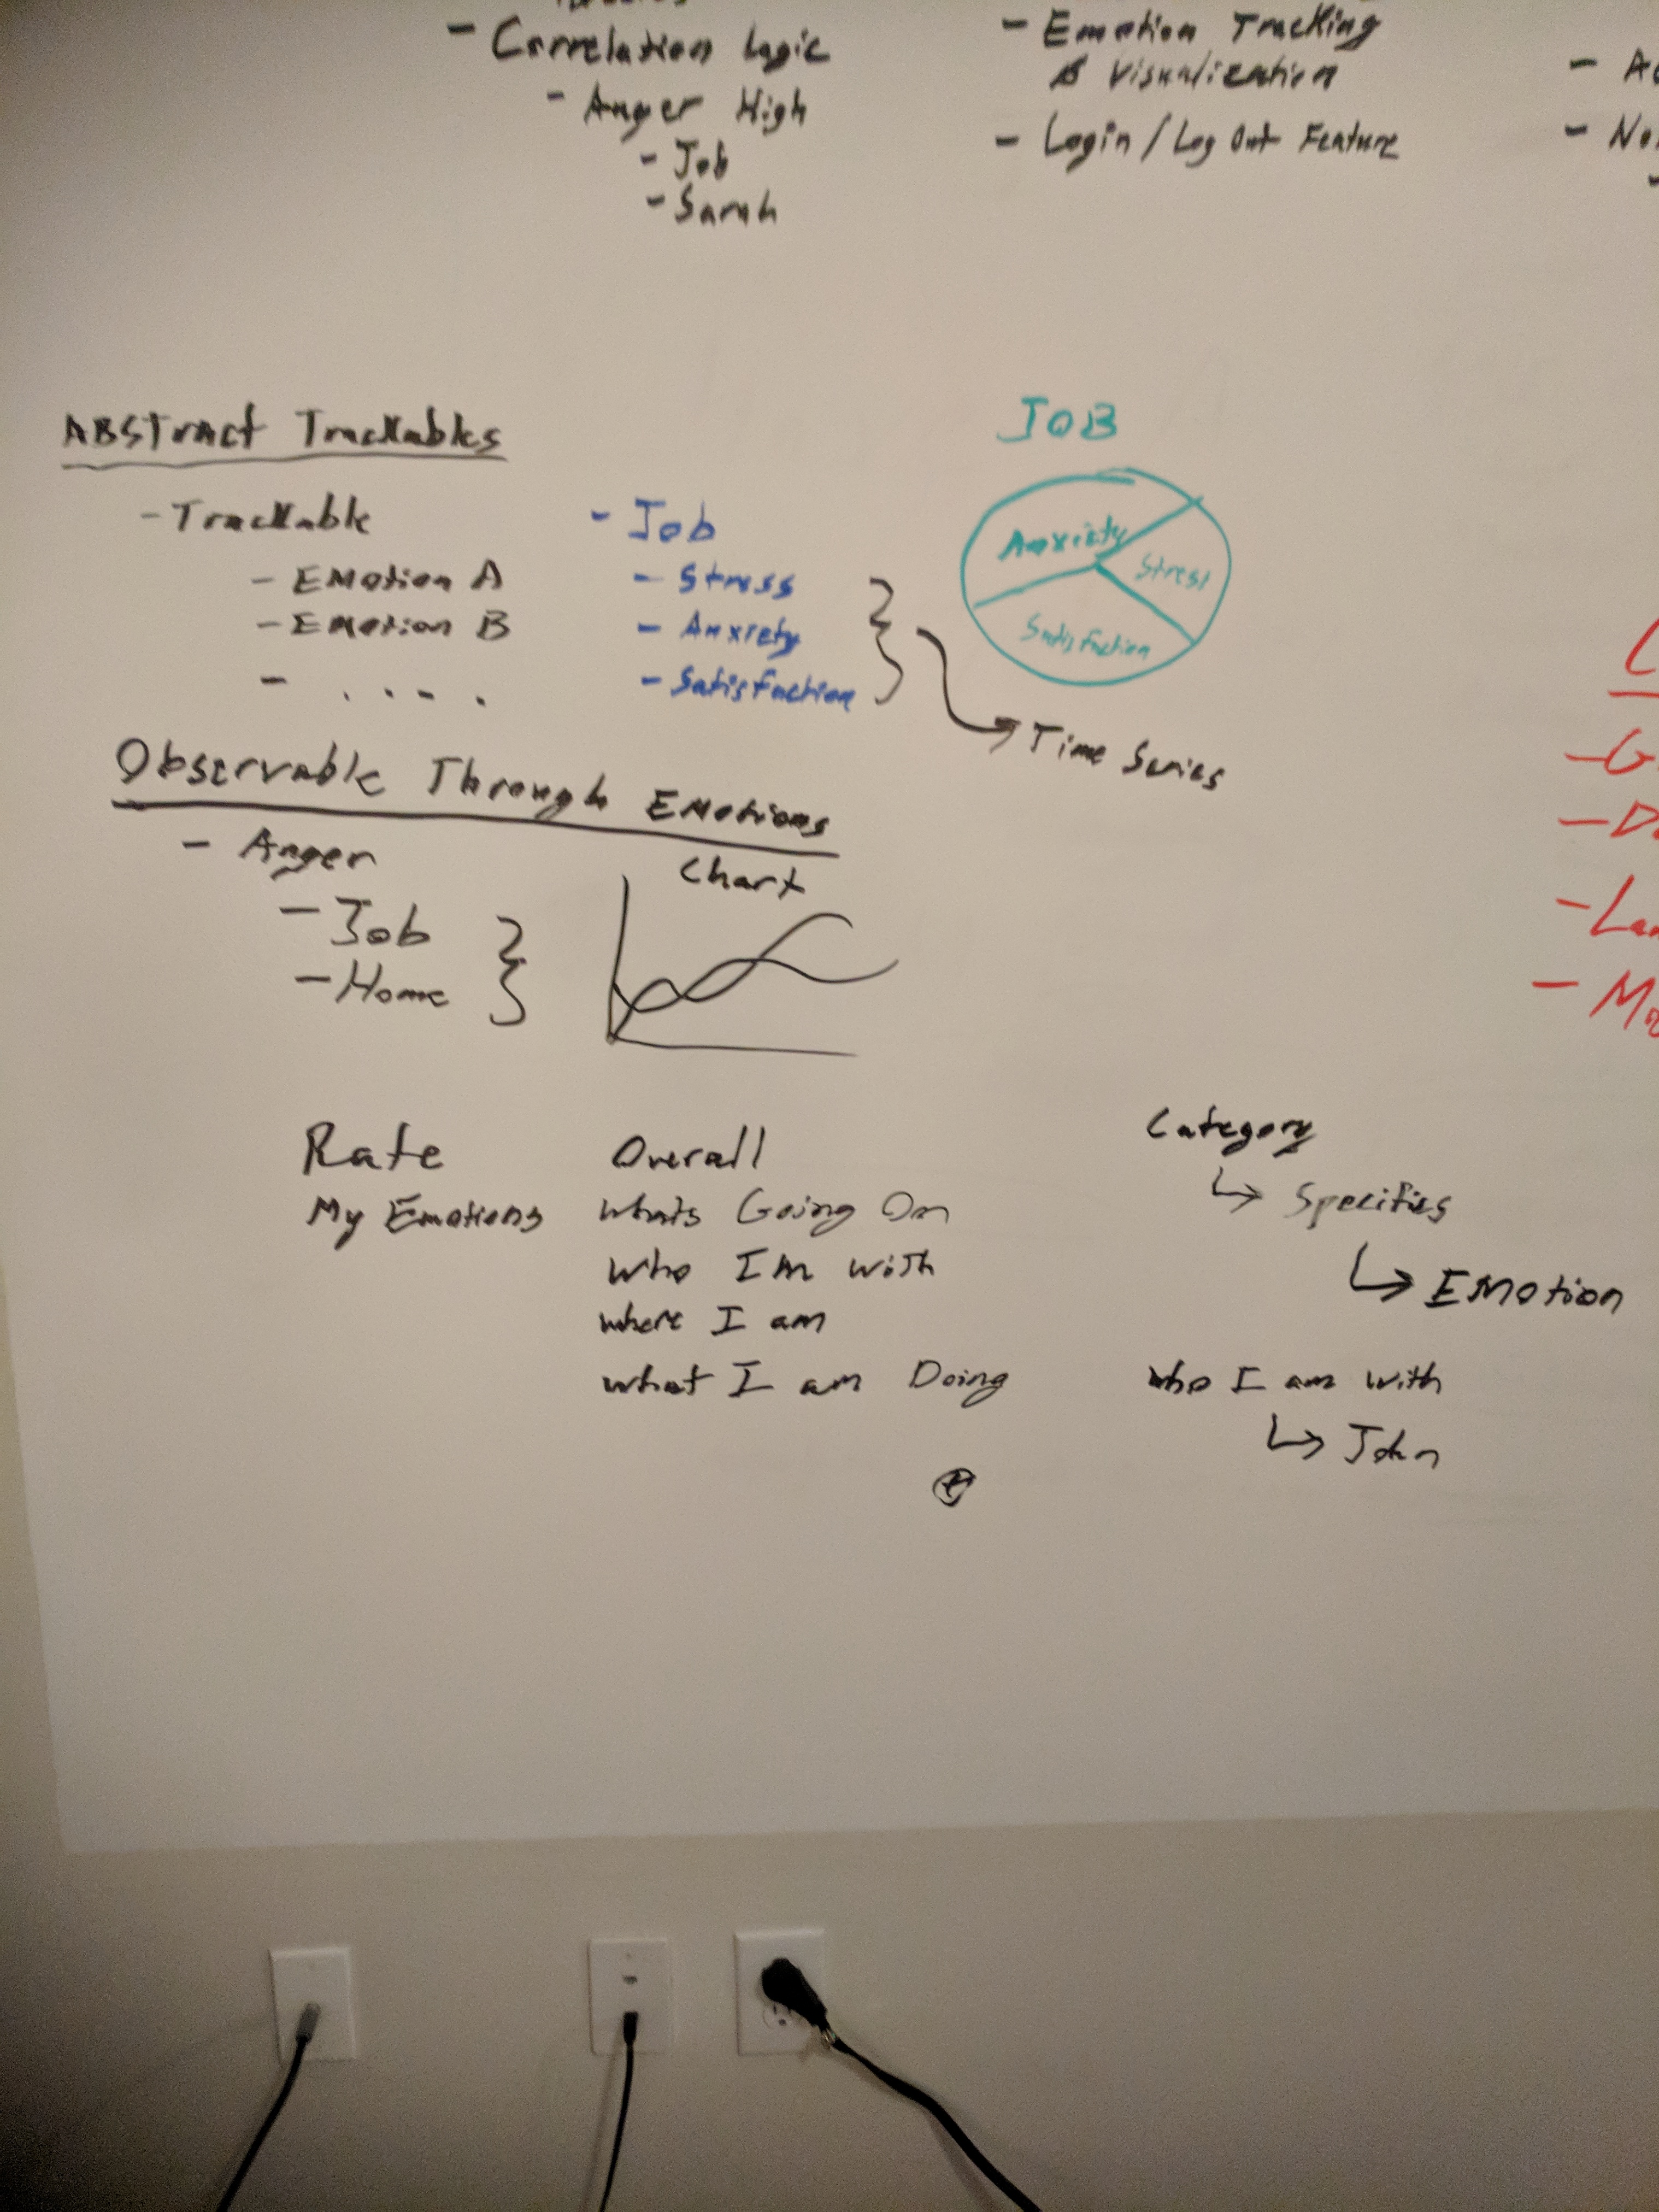 - Correlation Logic
- Anger High
- Job
- Sarah
- Emotion Tracking
& Visualization
- Login / Log Out Feature
ABSTract Trackables
- Trackable
- EMotion A
- EMotion B
- . . - .
- Job
- Stress
- Anxiety
- Satisfaction
JOB
Anxiety
Stress
Satisfaction
Time Series
Observable Through EMotions
- Anger
- Job
- Home
Chart
Rate
My Emotions
Overall
whats Going On
who IM with
where I am
what I am Doing
Category
↳ Specifics
↳ EMotion
who I am with
↳ John